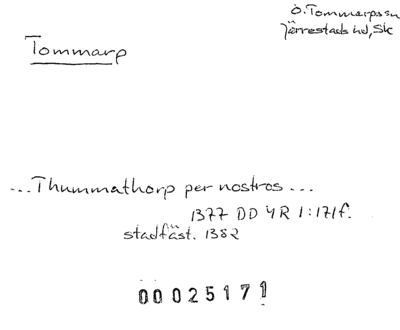 Ö. Tommarps sn
Järrestads hd, Sk
Tommarp
...Thummathorp per nostros...
1377 DD 4R 1:171f.
stadfäst. 1382
00025171